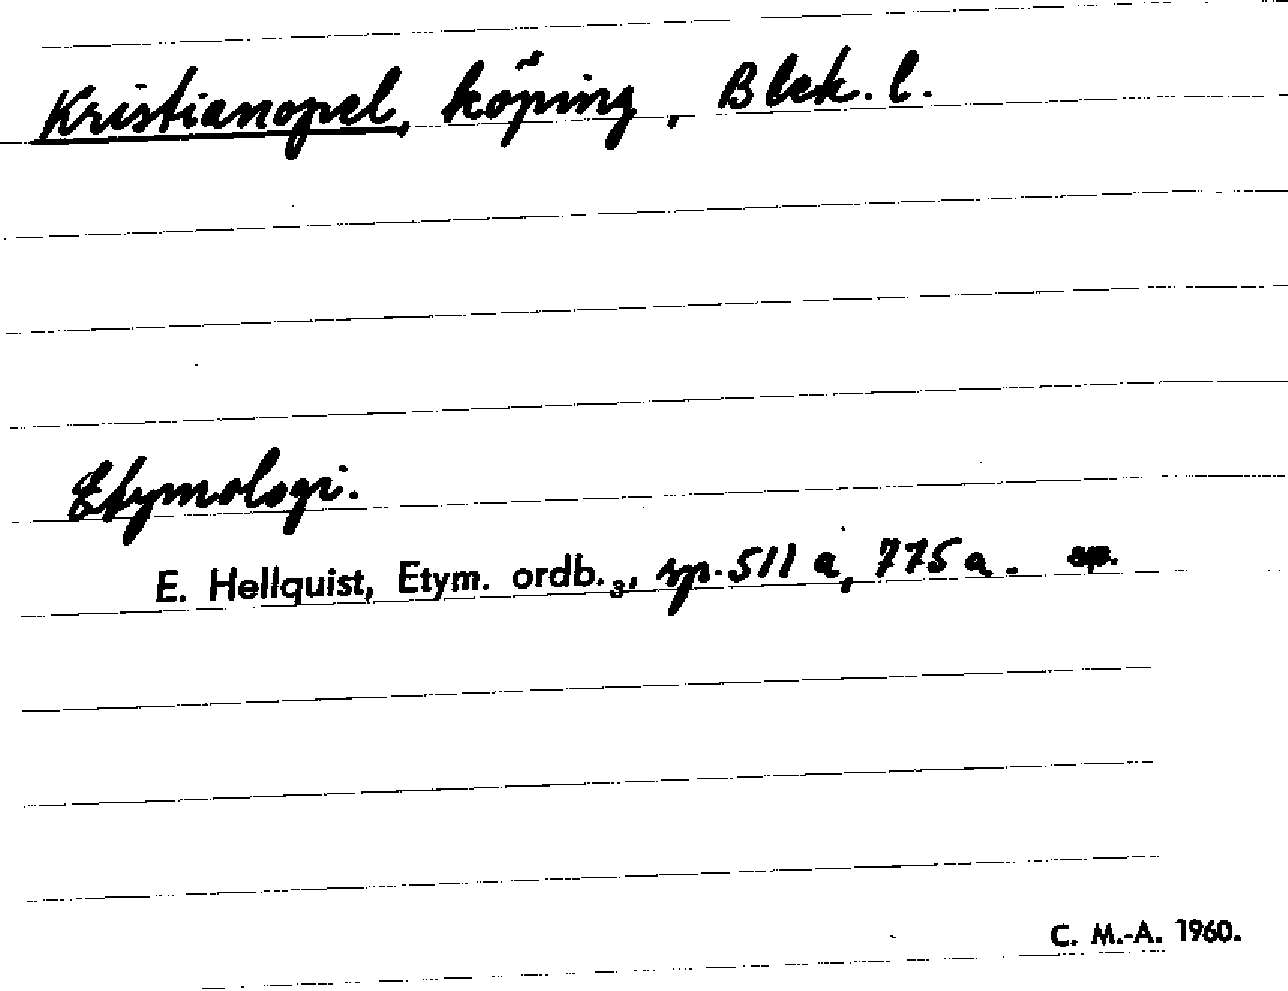 Kristianopel, köping, Blek. l.
Etymologi.
E. Hellquist, Etym. ordb.₃, sp. 511 a, 775 a. sp.
C. M.-A. 1960.